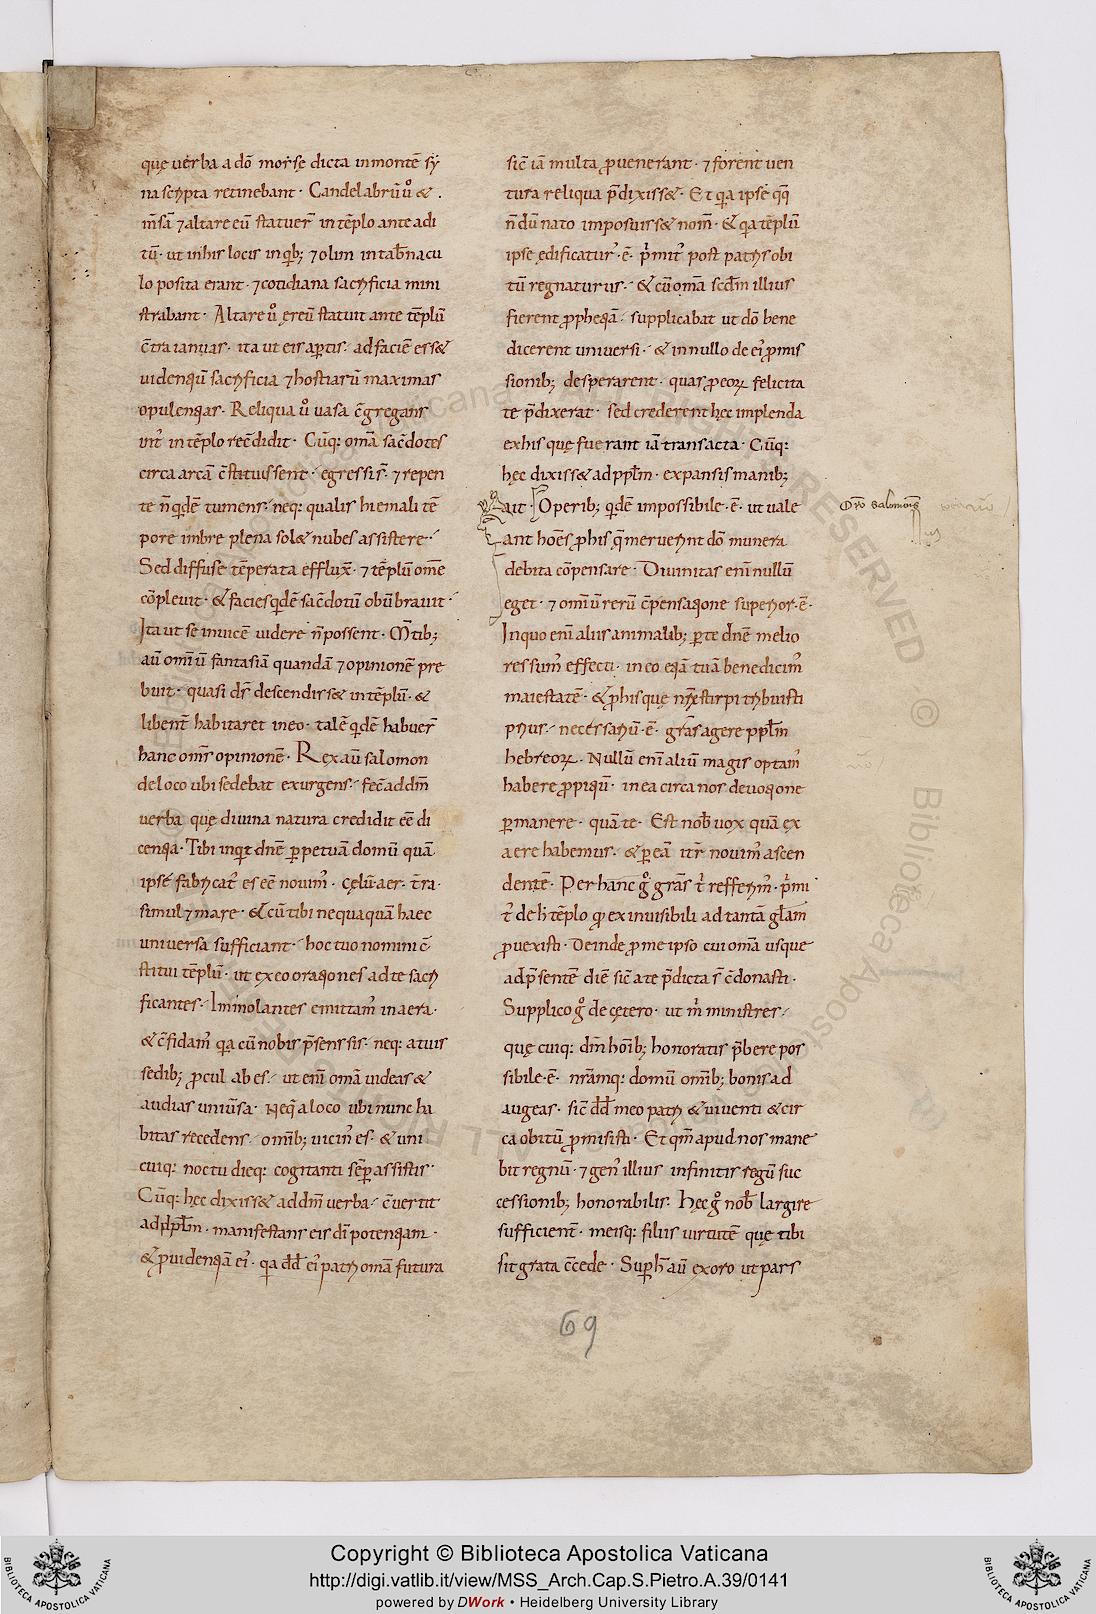 quę uerba a dō moyse dicta in montē sy
na scripta retinebant · Candelabrū u͛o &
m̄sā ⁊ altare eū statuer̄ in tēplo ante adi
tū · ut in his locis in qͥb; ⁊ olim in tab̄nacu
lo posita erant · ⁊ cotidiana sacrificia mini
strabant · Altare u͛o ęreū statuit ante tēplū
c̄tra ianuas · ita ut eis aꝑtis · ad faciē ess&
uidentiū sacrificia ⁊ hostiarū maximas
opulentias · Reliqua u͛o uasa c̄gregans
int͛ in tēplo rec̄didit · Cūq: om̄a sac̄dotes
circa arcā c̄stituissent · egressis · ⁊ repen
te n̄ qͥdē tumens · neq: qualis hiemali tē
pore imbre plena sol& nubes assistere ·
Sed diffuse tēperata efflux̄ · ⁊ tēplū om̄e
cōpleuit · & facies qͥdē sac̄dotū obūbrauit ·
Ita ut se inuicē uidere n̄ possent · M̄tib;
aū om̄iū fantasiā quandā ⁊ opinionē pre
buit · quasi dS̄ descendiss& in tēplū · &
libent̄ habitaret in eo · talē qͥdē habuer̄
hanc om̄s opinionē · Rex aū salomon
de loco ubi sedebat exurgens · fec̄ ad dm̄
uerba quę diuina natura credidit eē di
centia · Tibi inqͥt dn̄e ꝑpetuā domū quā
ipse fabricat͛ es eē nouim͛ · cęlū · aer · t̄ra ·
simul ⁊ mare · & cū tibi nequaquā haec
uniuersa sufficiant · hoc tuo nomini c̄
stitui tēplū · ut ex eo orationes ad te sacri
ficantes · Immolantes emittam͛ in aera ·
& c̄fidam͛ qͥa cū nobis p̄sens sis · neq: a tuis
sedib; ꝓcul ab es · ut eni om̄a uideas &
audias uniūsa · Neqͥ a loco ubi nunc ha
bitas recedens · om̄ib; uicin͛ es · & uni
cuiq: noctu dieq: cogitanti sēꝑ assistis ·
Cūq: hęc dixiss& ad dm̄ uerba · c̄uertit
ad ppl̄m · manifestans eis dī potentiam ·
& ꝓuidentiā ei͛ · qͥa dd̄ ei͛ patri om̄a futura
sic̄ iā multa ꝓuenerant · ⁊ forent uen
tura reliqua p̄dixiss& · Et qͥa ipse qͥq̄
n̄ dū nato imposuiss& nom̄ · & qͥa tēplū
ipse ędificatur͛ · ē · p͛mit͛ post patris obi
tū regnaturus · & cū om̄a scd̄m illius
fierent ꝓphetiā · supplicabat ut dō bene
dicerent uniuersi · & in nullo de ei͛ ꝓmis
sionib; desperarent · quas ꝓ eoꝝ felicita
te p̄dixerat · sed crederent hęc implenda
ex his quę fuerant iā transacta · Cūq:
hęc dixiss& ad ppl̄m · expansis manib;
ait · Operib; qͥdē impossibile · ē · ut uale
ant hoēs ꝓ his q̄ meruerint dō munera
debita cōpensare · Diuinitas enī nullū
eget · ⁊ om̄iū rerū c̄pensatione superior · ē ·
In quo enī aliis animalib; ꝑ te dn̄e melio
res sum͛ effecti · in eo etiā tuā benedicim͛
maiestatē · & ꝓ his quę nr̄ę stirpi tribuisti
prius · necessariū · ē · grās agere ppl̄m
hebreoꝝ · Nullū enī aliū magis optam͛
habere ꝓpitiū · in ea circa nos deuotione
ꝑmanere · quā te · Est nob̄ uox quā ex
aere habemus · & ꝑ eā iter nouim͛ ascen
dentē · Per hanc g͛ grās t͛ refferim͛ · p͛mi
t͛ de h͛ tēplo qͥ ex inuisibili ad tantā gl̄am
ꝓuexisti · Deinde ꝓ me ipso cui om̄a usque
ad p̄sentē diē sic̄ a te p̄dicta s̄ c̄donasti ·
Supplico g͛ de cętero · ut m͛ ministres ·
quę cuiq: dn̄i hoīb; honoratis p̄bere pos
sibile · ē · nr̄āmq: domū om̄ib; bonis ad
augeas · sic̄ dd̄ meo patri & uiuenti & cir
ca obitū ꝓmisisti · Et qm̄ apud nos mane
bit regnū · ⁊ gen͛ illius infinitis regū suc
cessionib; honorabilis · Hęc g͛ nob̄ largire
sufficient̄ · meisq: filiis uirtutē quę tibi
sit grata c̄cede · Suꝑ h̄ aū exoro ut pars
Oro Salomonis
69
Copyright © Biblioteca Apostolica Vaticana
http://digi.vatlib.it/view/MSS_Arch.Cap.S.Pietro.A.39/0141
powered by DWork • Heidelberg University Library
BIBLIOTECA APOSTOLICA VATICANA
BIBLIOTECA APOSTOLICA VATICANA